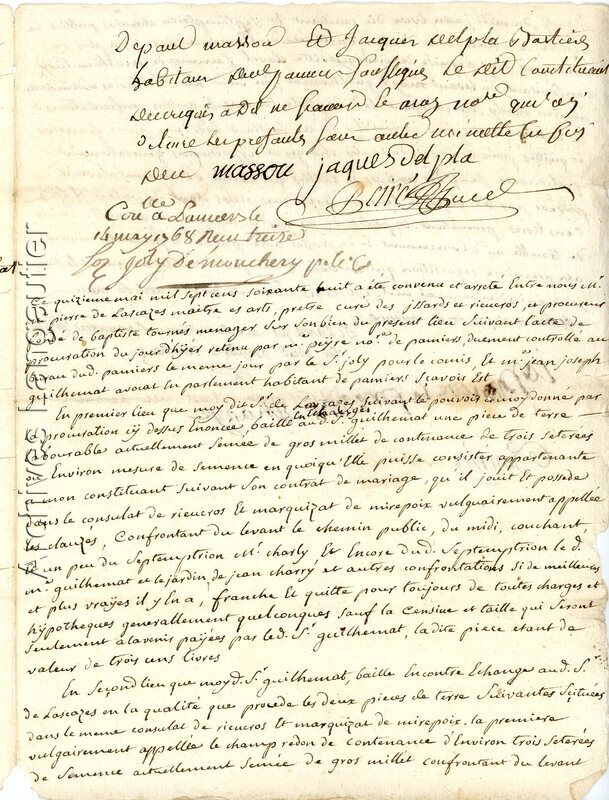 De paul massou Et Jacques Delpla
habitans
massou jaques delpla
Con.lle à Pamiers le
14 may 1768
joly De monchery
Ce quizieme mai mil sept cens soixante huit a été convenu et arreté Entre nous M.e
pierre de Lascazes maitre es arts, pretre curé des jssards et rieucros, et procureur
fondé de baptiste tournés menager sur son bien du present lieu suivant l'acte de
procuration du jour d'hÿer retenu par m.e peÿre no.re de pamiers duement controllé au
bureau dud. pamiers le meme jour par le S.r joly pour le comis Et m.e jean joseph
guilhemat avocat En parlement habitant de pamiers scavoir Est
En premier lieu que moy dit S.r de Lascazes suivant le pouvoir a moy donné par
la procuration cÿ dessus Enoncée, baille En Echange aud. S.r guilhemat une piece de terre
labourable actuellement semée de gros millet de contenance de trois seterées
ou Environ mesure de semence en quoiqu'Elle puisse consister appartenante
a mon constituant suivant son contrat de mariage, qu'il jouit Et possede
dans le consulat de rieucros Et marquizat de mirepoix vulguairement appellée
les clauzes, Confrontant du levant le chemin public, du midi, couchant
Et un peu du septemptrion M.r charly et Encore dud. septemptrion le d.
m.e guilhemat et le jardin de jean charry et autres confrontations si de meilleures
et plus vraÿes il y En a, franche Et quitte pour toujours de toutes charges et
hÿpotheques generallement quelconques sauf la censive et taille qui seront
seulement a l'avenir paÿées par le d. S.r guilhemat, la dite piece etant de
valeur de trois cens livres
En second lieu que moy d. S.r guilhemat, baille En contre Echange au d. S.r
de Lascazes en la qualité que procede les deux pieces de terre suivantes scituées
dans le meme consulat de rieucros Et marquizat de mirepoix. la premiere
vulgairement appellée le champ redon de contenance d'Environ trois seterées
de semence actuellement semée de gros millet confrontant du levant
Archives Lamoutier